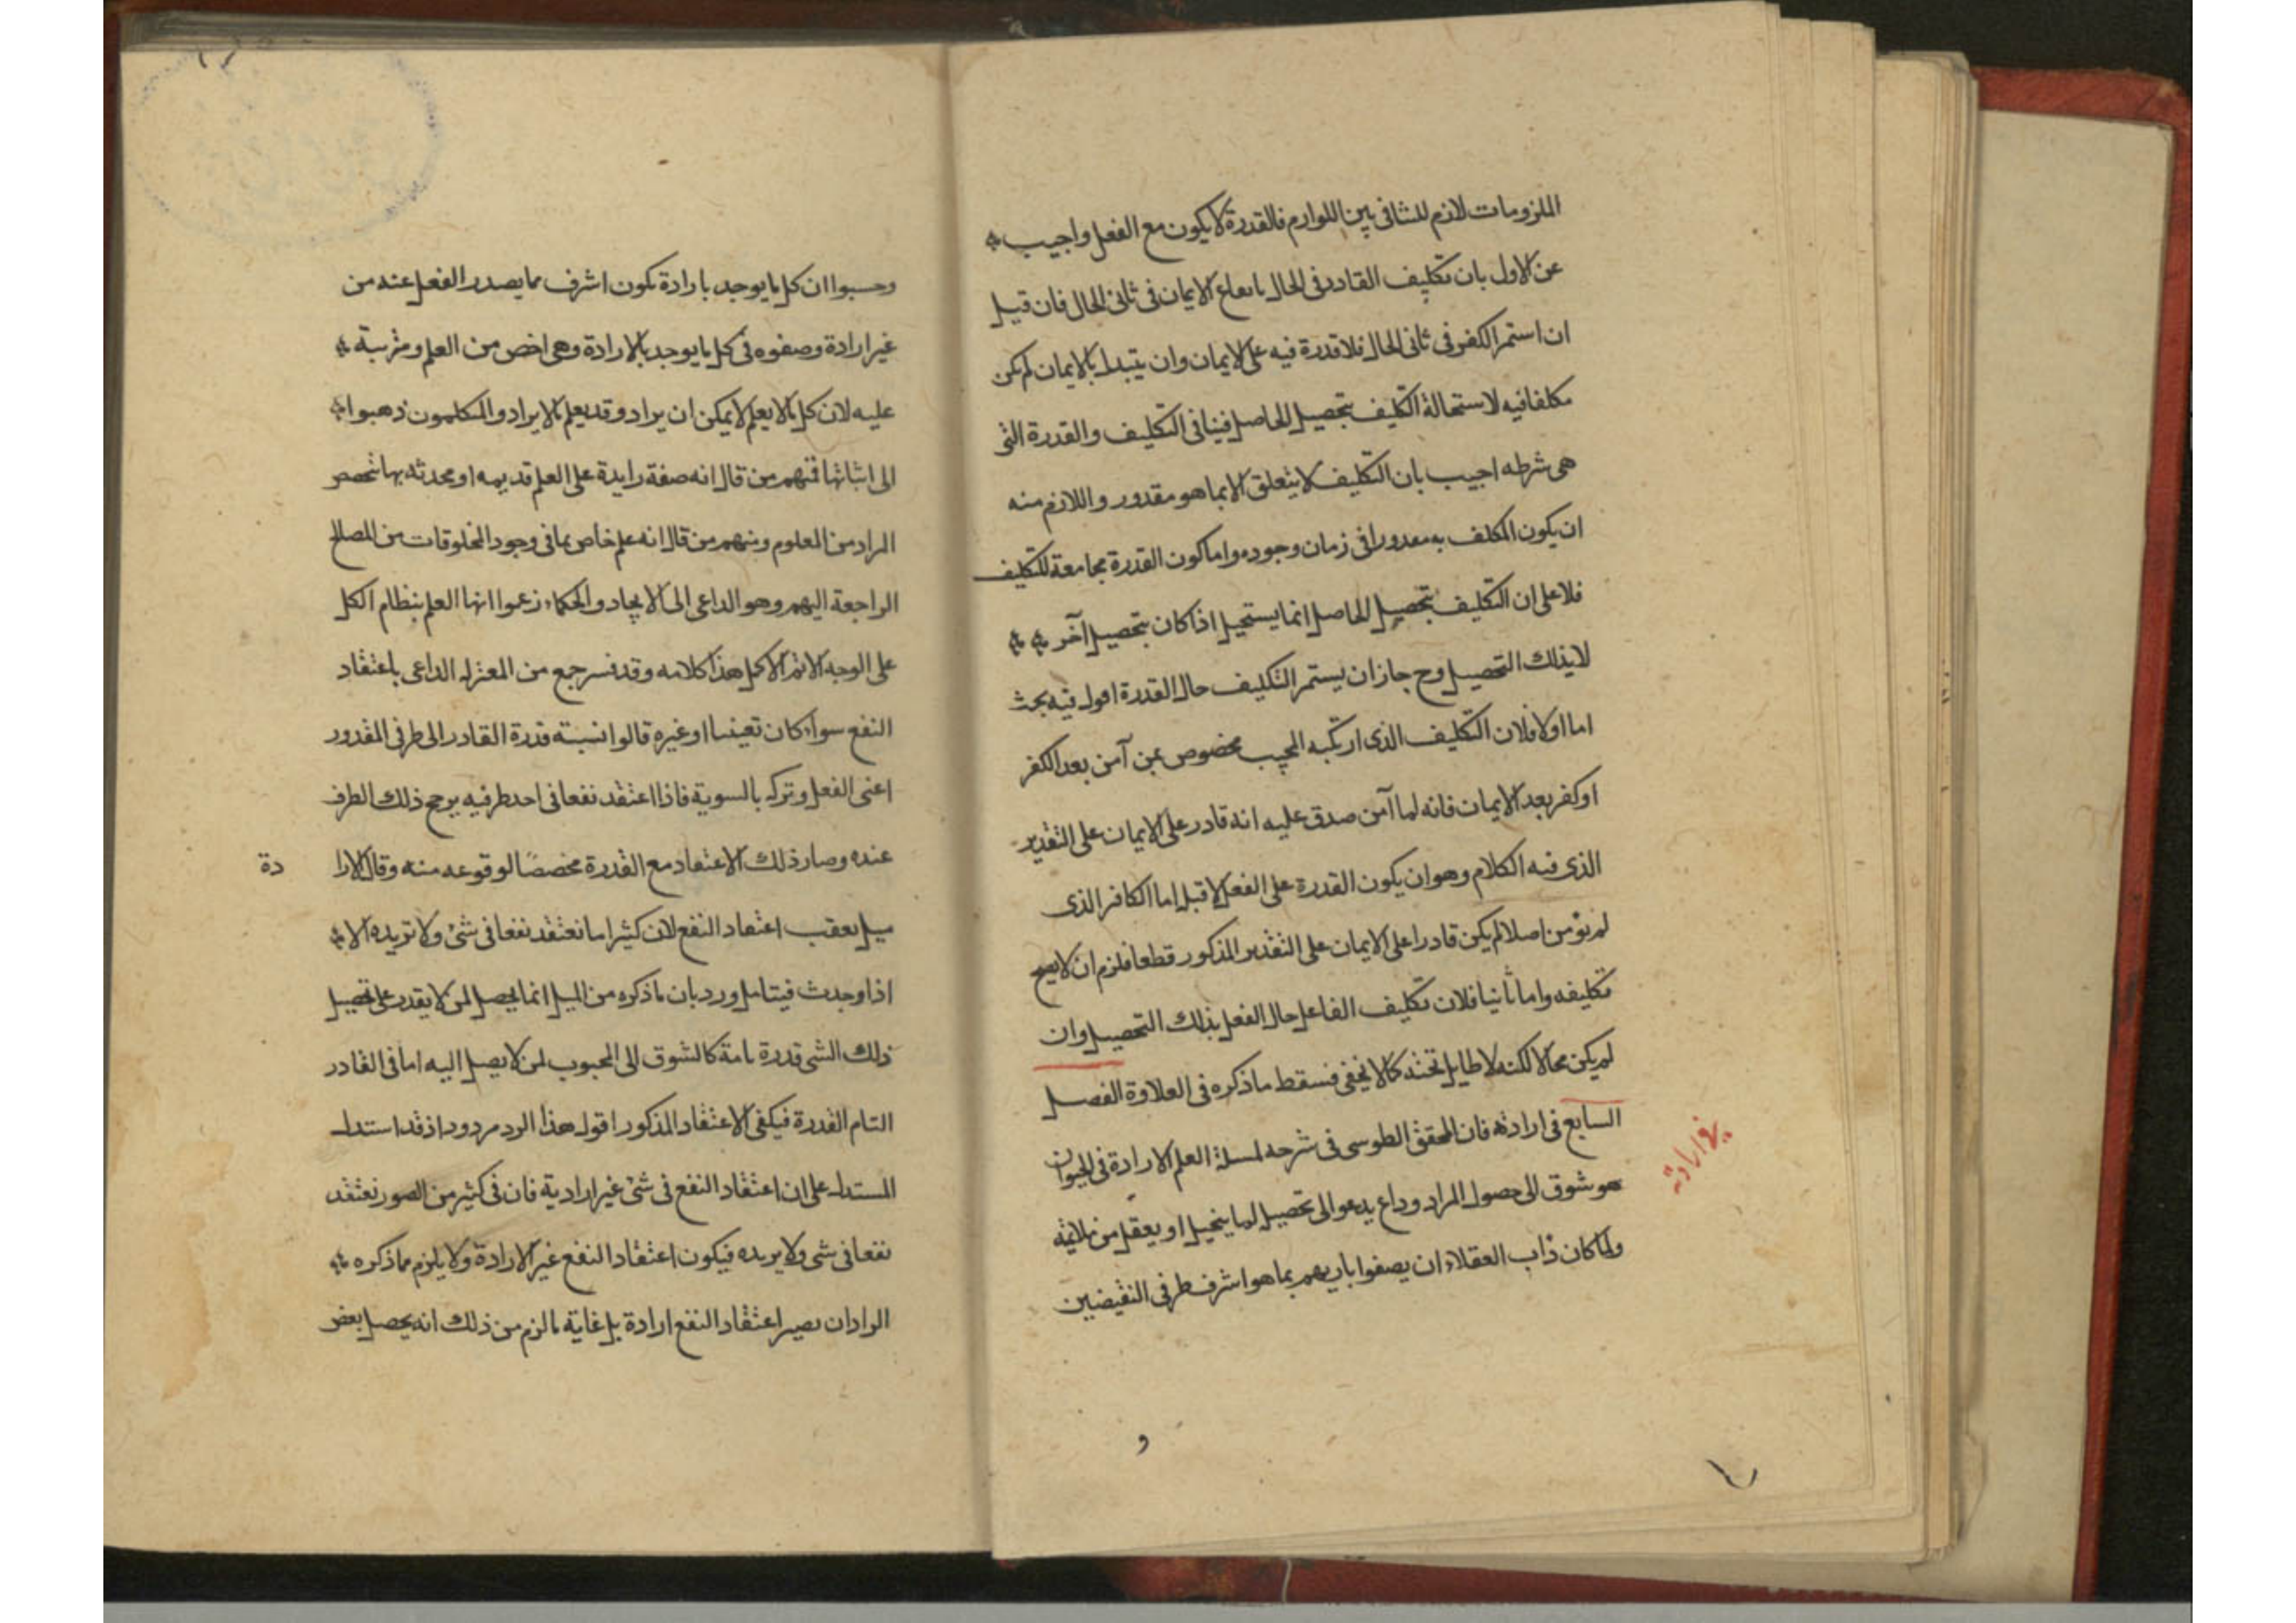 الملزومات لازم للتنافى بين اللوازم فالقدرة لا يكون مع الفعل واجيب
عن الاول بان تكليف القادر فى الحال بايقاع الايمان فى ثانى الحال فان قيل
ان استمر الكفر فى ثانى الحال فلا قدرة فيه على الايمان وان يتبدل بالايمان لم يكن
مكلفا فيه لاستحالة التكليف بتحصيل الحاصل فينافى التكليف والقدرة التى
هى شرطه اجيب بان التكليف لا يتعلق الا بما هو مقدور واللازم منه
ان يكون المكلف به مقدورا فى زمان وجوده واما كون القدرة مجامعة للتكليف
فلا على ان التكليف بتحصيل الحاصل انما يستحيل اذا كان بتحصيل آخر
لا بذلك التحصيل وح جاز ان يستمر التكليف حال القدرة اقول فيه بحث
اما اولا فلان التكليف الذى ارتكبه المجيب مخصوص بمن آمن بعد الكفر
او كفر بعد الايمان فانه لما آمن صدق عليه انه قادر على الايمان على التقدير
الذى فيه الكلام وهو ان يكون القدرة على الفعل لا قبل اما الكافر الذى
لم يؤمن اصلا لم يكن قادرا على الايمان على التقدير المذكور قطعا فلزم ان لا يصح
تكليفه واما ثانيا فلان تكليف الفاعل حال الفعل بذلك التحصيل وان
لم يكن محالا لكنه لا طايل تحته كما لا يخفى فسقط ما ذكره فى العلاوة الفصل
السابع فى ارادته فان المحقق الطوسى فى شرحه لمسئلة العلم الارادة فى الحيوان
هو شوق الى حصول المراد وداع يدعو الى تحصيل لما يتخيل او يعقل من ملايمة
ولما كان ذاب العقلاء ان يصفوا باريهم بما هو اشرف طرفى النقيضين
فى ارادته
و
وحسبوا ان كل ما يوجد بارادة تكون اشرف مما يصدر الفعل عنه من
غير ارادة وصفوه فى كل ما يوجد بالارادة وهى اخص من العلم ومرتبة
عليه لان كل ما لا يعلم لا يمكن ان يراد وقد يعلم ما لا يراد والمتكلمون ذهبوا
الى اثباتها فمنهم من قال انه صفة زايدة على العلم قديمه او محدثه بها تخصص
المراد من العلوم ومنهم من قال انه علم خاص بما فى وجود المخلوقات من المصالح
الراجعة اليهم وهو الداعى الى الايجاد والحكماء زعموا انها العلم بنظام الكل
على الوجه الاتم الاكمل هذا كلامه وقد فسر جمع من المعتزله الداعى باعتقاد
النفع سواء كان تعينيا او غيره قالوا نسبة قدرة القادر الى طرفى المقدور
اعنى الفعل وتركه بالسوية فاذا اعتقد نفعا فى احد طرفيه يرجح ذلك الطرف
عنده وصار ذلك الاعتقاد مع القدرة مخصصا لوقوعه منه وقال الارا دة
ميل يعقب اعتقاد النفع لان كثيرا ما نعتقد نفعا فى شئ ولا نريده الا
اذا وجدت فيتامل ورد بان ما ذكره من الميل انما يحصل لمن لا يقدر على تحصيل
ذلك الشى قدرة تامة كالشوق الى المحبوب لمن لا يصل اليه اما فى القادر
التام القدرة فيكفى الاعتقاد المذكور اقول هذا الرد مردود اذ قد استدل
المستدل على ان اعتقاد النفع فى شئ غير ارادية فان فى كثير من الصور نعتقد
نفعا فى شى ولا يريده فيكون اعتقاد النفع غير الارادة ولا يلزم مما ذكره
الراد ان يصير اعتقاد النفع ارادة بل غاية ما لزم من ذلك انه يحصل بعض